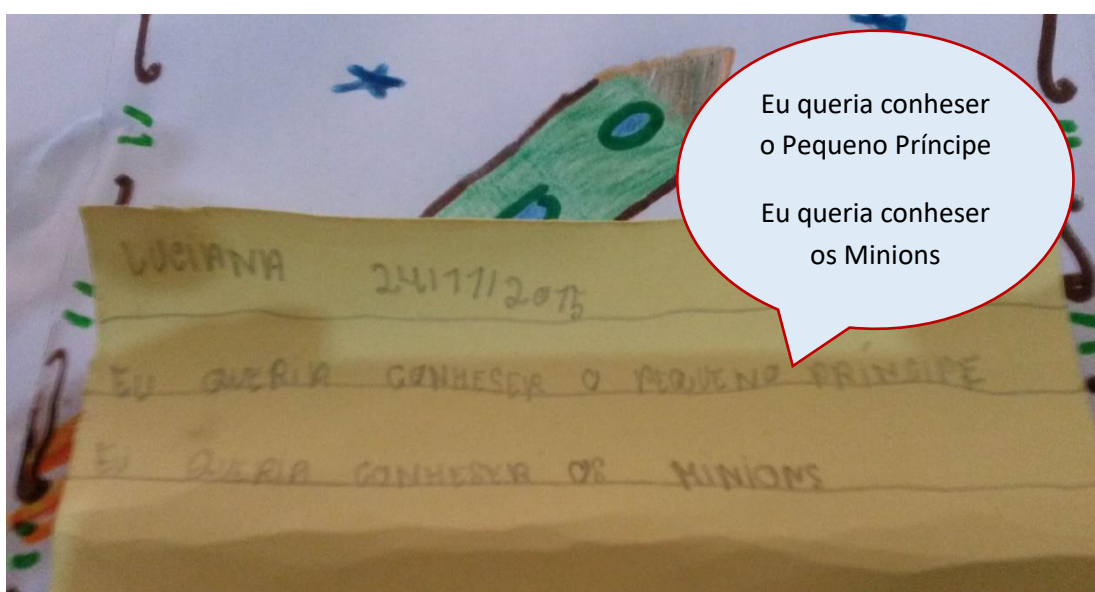 Eu queria conheser
o Pequeno Príncipe
Eu queria conheser
os Minions
LUCIANA 24/11/2015
EU QUERIA CONHESER O PEQUENO PRÍNCIPE
EU QUERIA CONHESER OS MINIONS